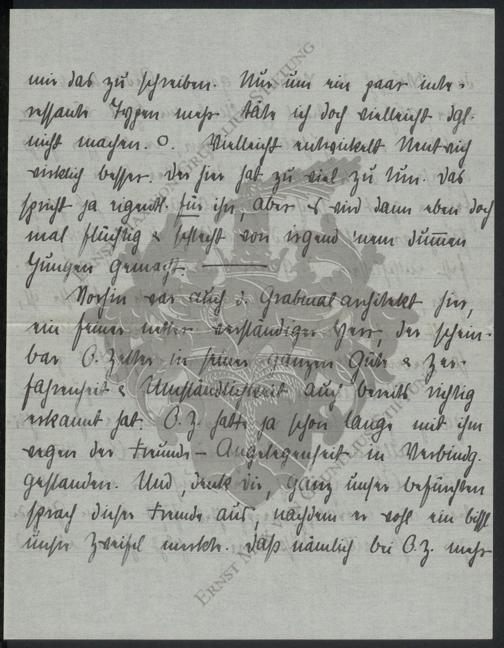 mir das zu schreiben. Nur um ein paar inte-
ressante Typen mehr täte ich doch vielleicht dgl.
nicht machen. O. Vielleicht entwickelt Neutrich
wirklich besser. Der hier hat zu viel zu tun. Das
spricht ja eigentl. für ihn, aber es wird dann eben doch
mal flüchtig & schlecht von irgend 'nem dummen
Jungen gemacht. ———
Vorhin war auch d. Grabmalarchitekt hier,
ein feiner netter verständiger Herr, der schein-
bar O. Zeller in seiner ganzen Güte & Zer-
fahrenheit & Umständlichkeit auch bereits richtig
erkannt hat. O. Z. hatte ja schon lange mit ihm
wegen der Freunde-Angelegenheit in Verbindg.
gestanden. Und, denk dir ganz unser befürchten
sprach dieser Fremde aus, nachdem er wohl ein bißl
unsre Zweifel merkte. Daß nämlich bei O. Z. mehr
ERNST MAXIMILIAN GRUNELIUS-STIFTUNG